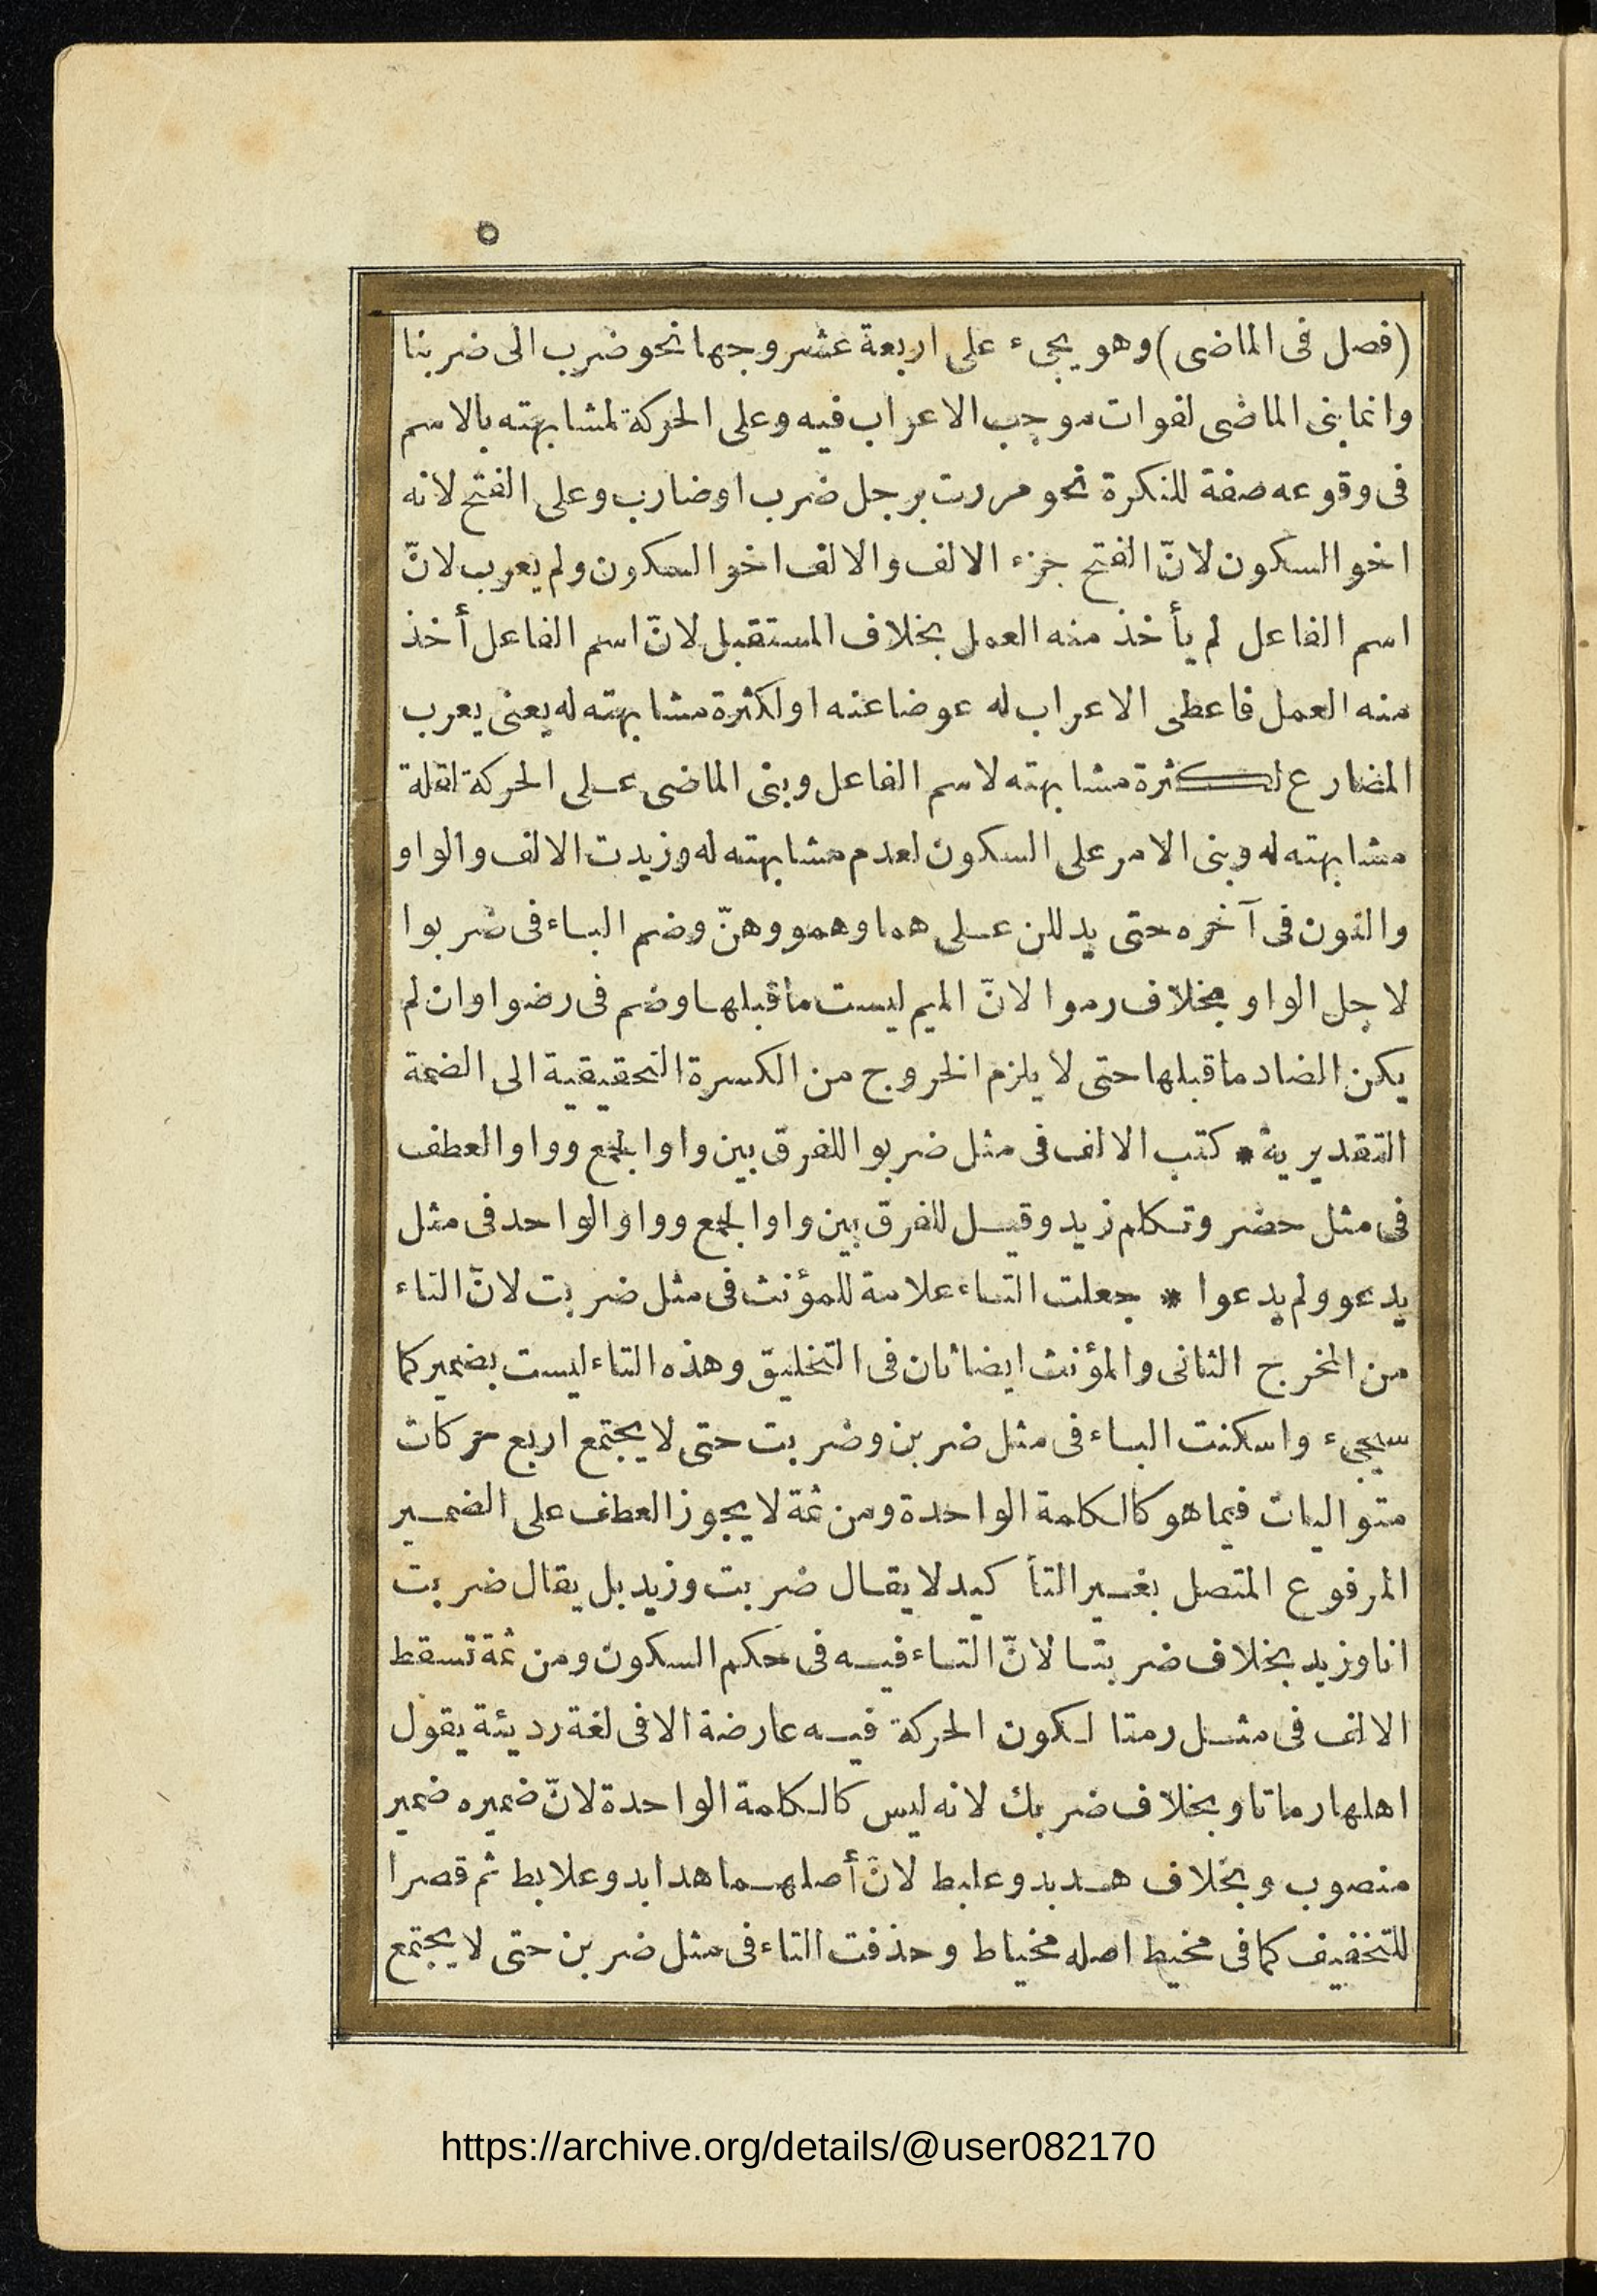 ٥
(فصل فى الماضى) وهو يجىء على اربعة عشر وجها نحو ضرب الى ضربنا
وانما بنى الماضى لفوات موجب الاعراب فيه وعلى الحركة لمشابهته بالاسم
فى وقوعه صفة للنكرة نحو مررت برجل ضرب او ضارب وعلى الفتح لانه
اخو السكون لانّ الفتح جزء الالف والالف اخو السكون ولم يعرب لانّ
اسم الفاعل لم يأخذ منه العمل بخلاف المستقبل لانّ اسم الفاعل أخذ
منه العمل فاعطى الاعراب له عوضا عنه او لكثرة مشابهته له يعنى يعرب
المضارع لكثرة مشابهته لاسم الفاعل وبنى الماضى على الحركة لقلة
مشابهته له وبنى الامر على السكون لعدم مشابهته له وزيدت الالف والواو
والنون فى آخره حتى يدللن على هما وهمو وهنّ وضم الباء فى ضربوا
لاجل الواو بخلاف رموا لانّ الميم ليست ما قبلها وضم فى رضوا وان لم
يكن الضاد ما قبلها حتى لا يلزم الخروج من الكسرة التحقيقية الى الضمة
التقديرية * كتب الالف فى مثل ضربوا للفرق بين واو الجمع وواو العطف
فى مثل حضر وتكلم زيد وقيل للفرق بين واو الجمع وواو الواحد فى مثل
يدعو ولم يدعوا * جعلت التاء علامة للمؤنث فى مثل ضربت لانّ التاء
من المخرج الثانى والمؤنث ايضا ثان فى التخليق وهذه التاء ليست بضمير كما
سيجىء واسكنت الباء فى مثل ضربن وضربت حتى لا يجتمع اربع حركات
متواليات فيما هو كالكلمة الواحدة ومن ثمة لا يجوز العطف على الضمير
المرفوع المتصل بغير التأكيد لا يقال ضربت وزيد بل يقال ضربت
انا وزيد بخلاف ضربتا لانّ التاء فيه فى حكم السكون ومن ثمة تسقط
الالف فى مثل رمتا لكون الحركة فيه عارضة الا فى لغة رديئة يقول
اهلها رماتا وبخلاف ضربك لانه ليس كالكلمة الواحدة لانّ ضميره ضمير
منصوب وبخلاف هدبد وعلبط لانّ أصلهما هدابد وعلابط ثم قصرا
للتخفيف كما فى مخيط اصله مخياط وحذفت التاء فى مثل ضربن حتى لا يجتمع
https://archive.org/details/@user082170